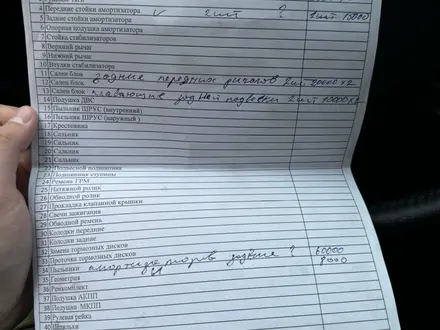 4 Передние стойки амортизатора ✓ 2 шт ?
5 Задние стойки амортизатора
6 Опорная подушка амортизатора
7 Стойка стабилизаторов
8 Верхний рычаг
9 Нижний рычаг
10 Втулки стабилизатора
11 Сален блок задние передних рычагов 2 шт 20000 x 2
12 Сален блок плавающие задней подвески 2 шт
13 Сален блок
14 Подушка ДВС
15 Пыльник ШРУС (внутренний)
16 Пыльник ШРУС (наружный)
17 Крестовина
18 Сальник
19 Сальник
20 Сальник
21 Сальник
22 Подвесной подшипник
23 Подшипник ступицы
24 Ремень ГРМ
25 Натяжной ролик
26 Обводной ролик
27 Прокладка клапанной крышки
28 Свечи зажигания
29 Обводной ремень
30 Колодки передние
31 Колодки задние
32 Замена тормозных дисков
33 Проточка тормозных дисков 60000
34 Пыльники амортизаторов задния ? 8000
35 Геометрия
36 Ремкомплект
37 Подушка АКПП
38 Подушка МКПП
39 Рулевая рейка
40 Шпильки